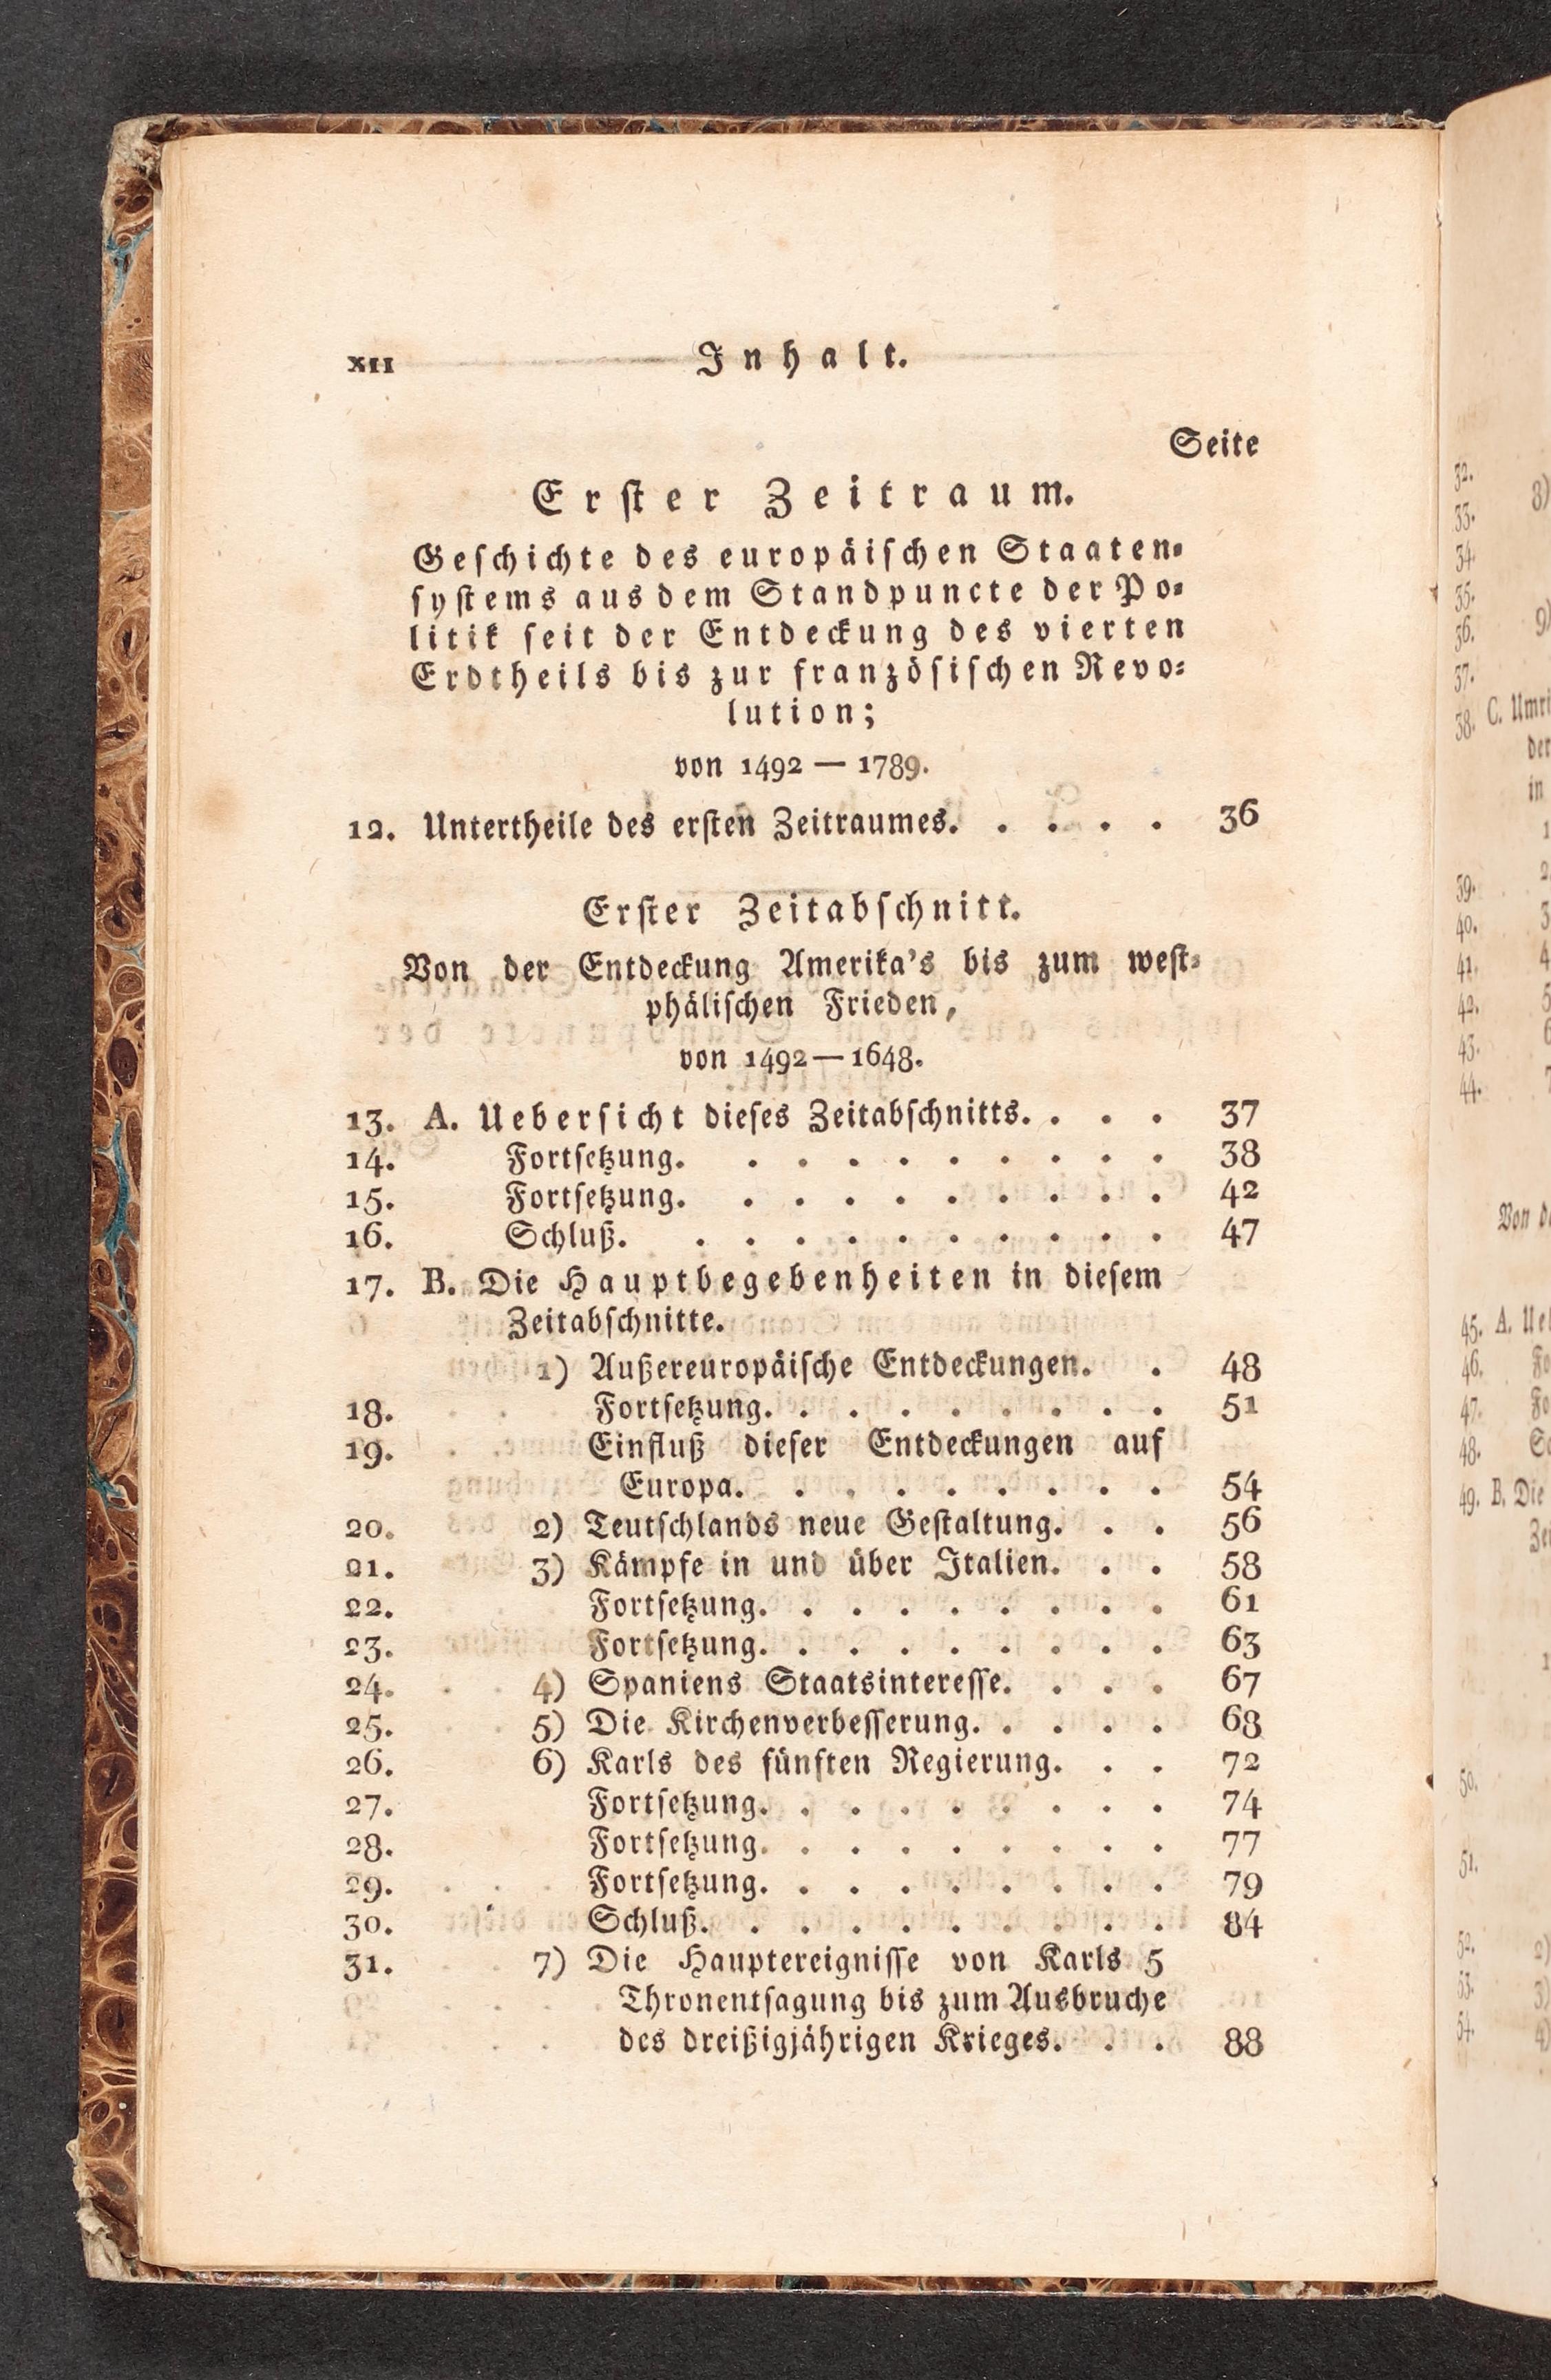 XII Inhalt.
Seite
Erster Zeitraum.
Geschichte des europäischen Staaten-
systems aus dem Standpuncte der Po-
litik seit der Entdeckung des vierten
Erdtheils bis zur französischen Revo-
lution;
von 1492 — 1789.
12. Untertheile des ersten Zeitraumes. . . . . 36
Erster Zeitabschnitt.
Von der Entdeckung Amerika's bis zum west-
phälischen Frieden,
von 1492—1648.
13. A. Uebersicht dieses Zeitabschnitts. . . . 37
14. Fortsetzung. . . . . . . . . . 38
15. Fortsetzung. . . . . . . . . . 42
16. Schluß. . . . . . . . . . . 47
17. B. Die Hauptbegebenheiten in diesem
Zeitabschnitte.
1) Außereuropäische Entdeckungen. . 48
18. Fortsetzung. . . . . . . . . 51
19. Einfluß dieser Entdeckungen auf
Europa. . . . . . . . . . 54
20. 2) Teutschlands neue Gestaltung. . . 56
21. 3) Kämpfe in und über Italien. . . 58
22. Fortsetzung. . . . . . . . . 61
23. Fortsetzung. . . . . . . . . 63
24. 4) Spaniens Staatsinteresse. . . . 67
25. 5) Die Kirchenverbesserung. . . . . 68
26. 6) Karls des fünften Regierung. . . 72
27. Fortsetzung. . . . . . . . . 74
28. Fortsetzung. . . . . . . . . 77
29. Fortsetzung. . . . . . . . . 79
30. Schluß. . . . . . . . . . 84
31. 7) Die Hauptereignisse von Karls 5
Thronentsagung bis zum Ausbruche
des dreißigjährigen Krieges. . . 88
32.
8)
33.
34.
35.
36.
9)
37.
38. C. Umri
der
in
39.
40.
41.
42.
43.
44.
Von d
45. A. Ueb
46. Fo
47. Fo
48. Sc
49. B. Die
Zei
50.
51.
52. 2)
53. 3)
54. 4)